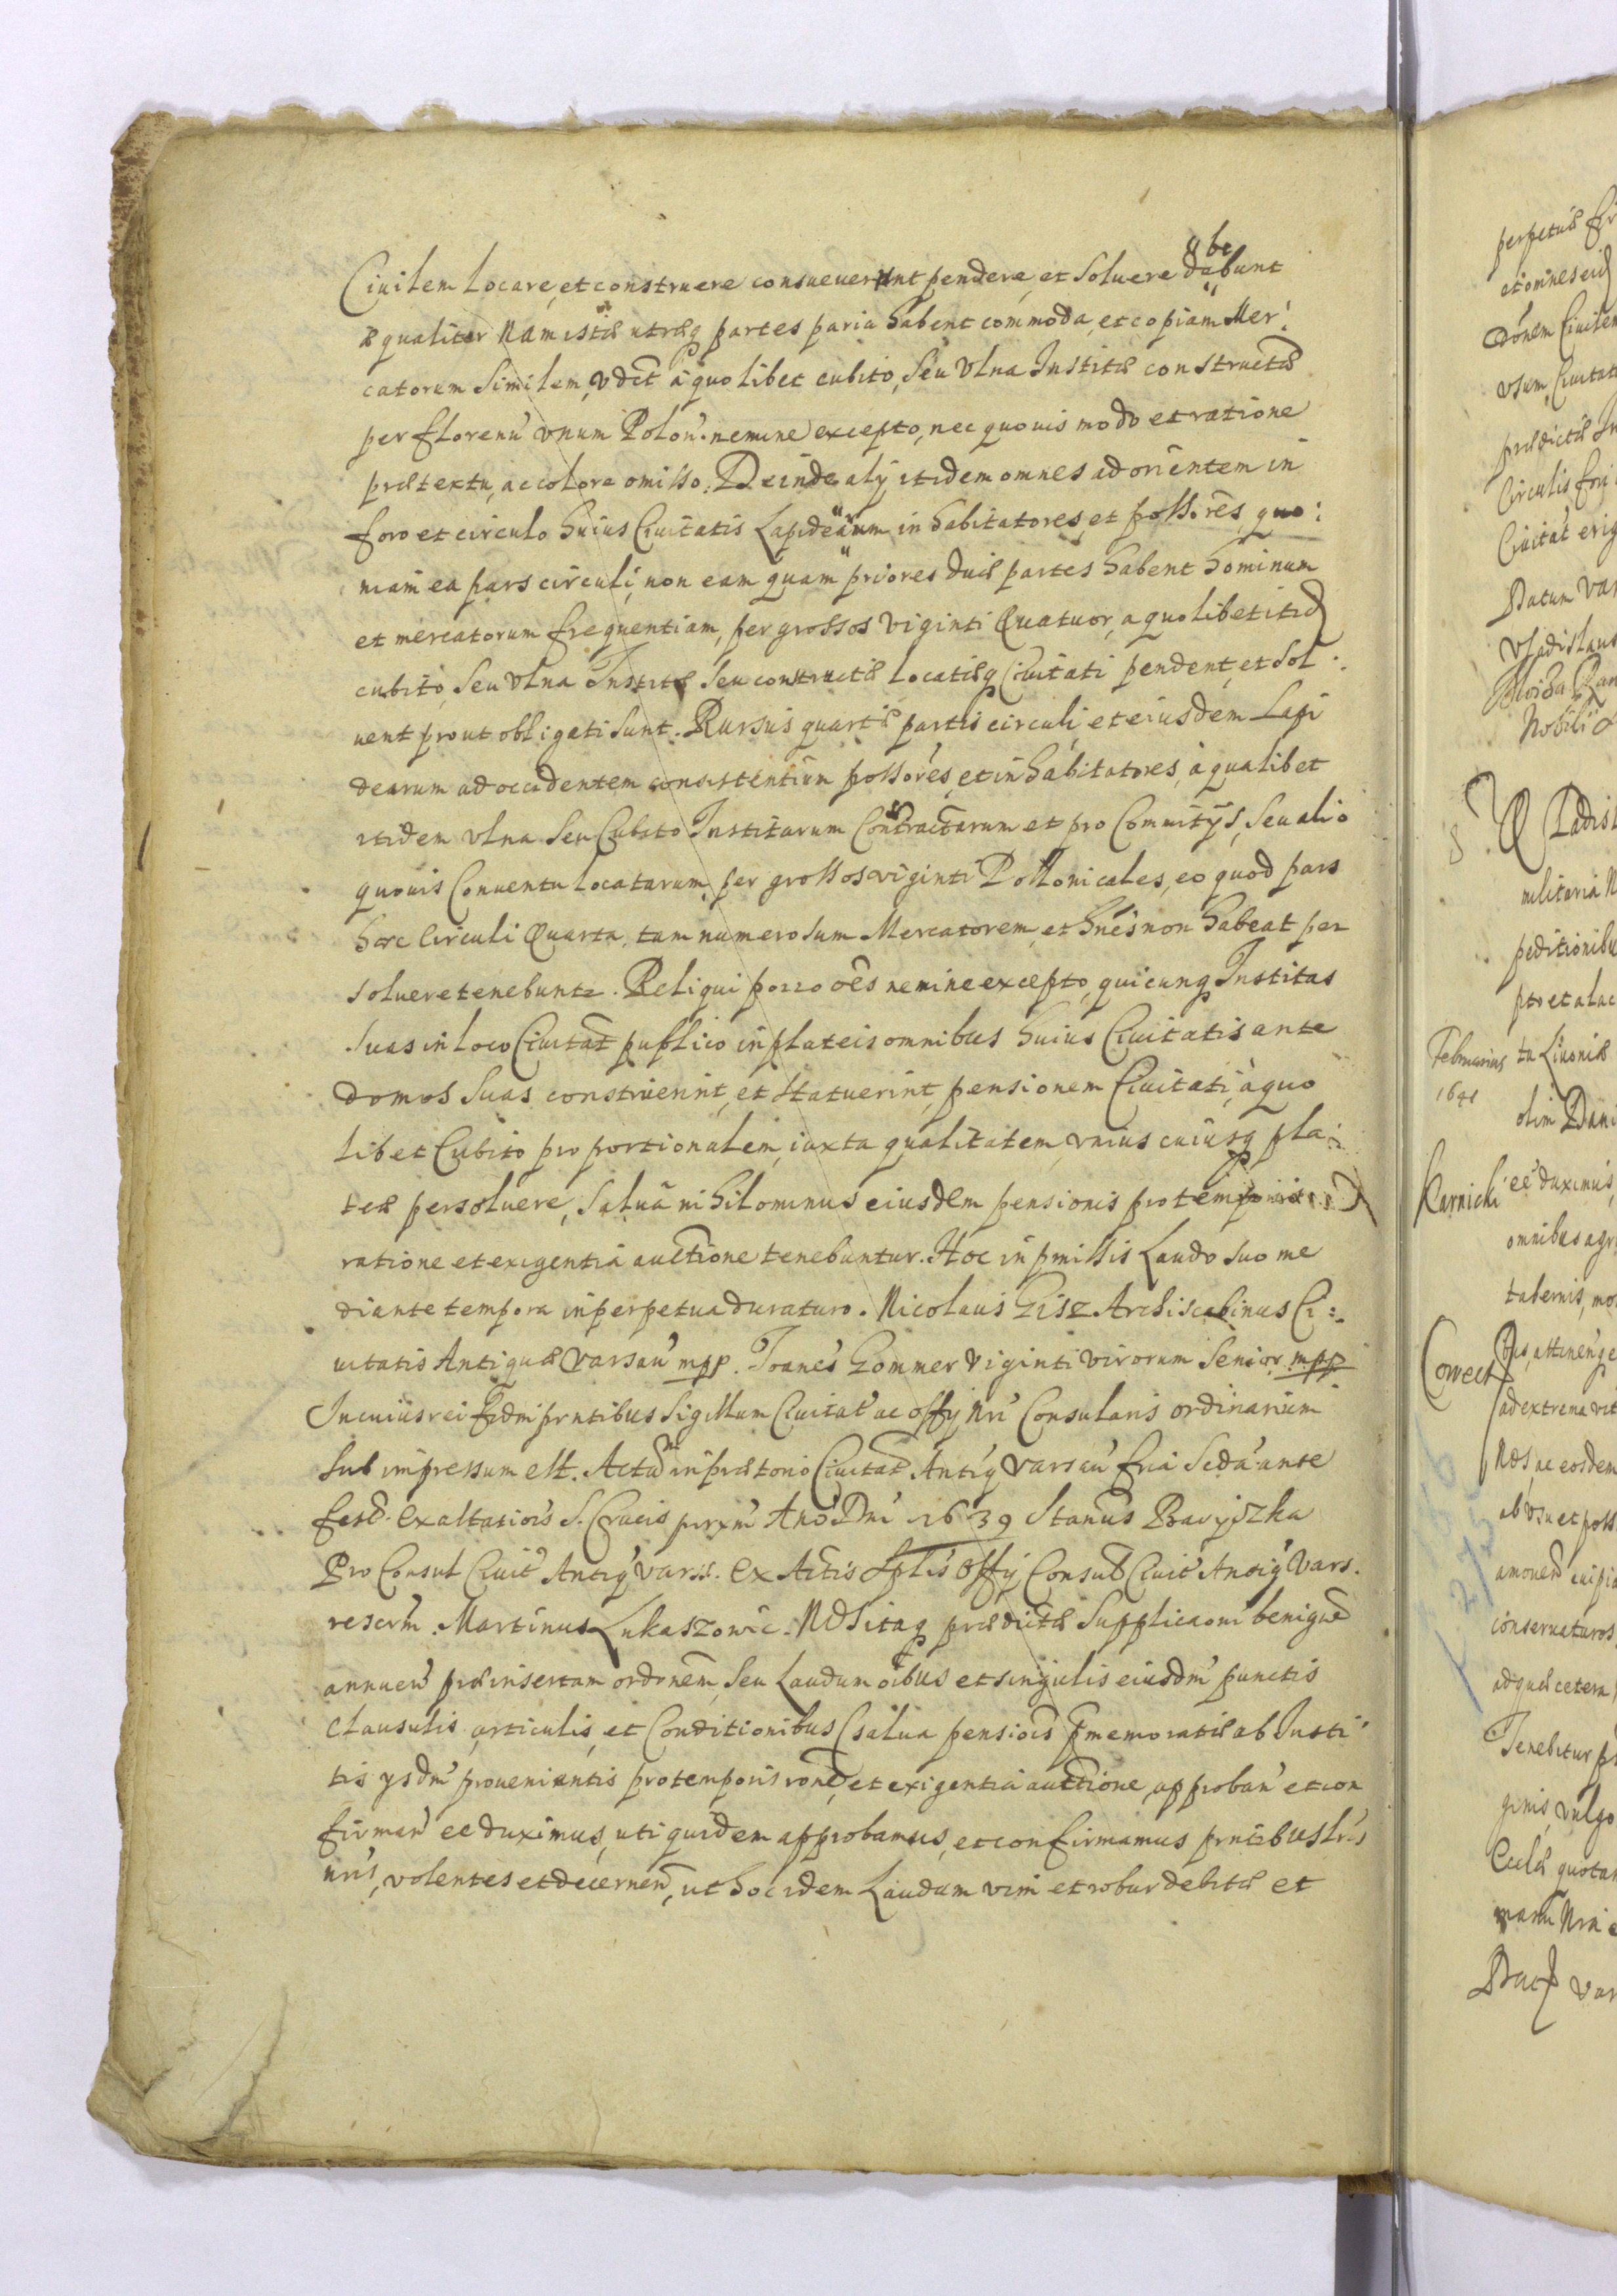 Ciuilem locare, et construere consueuerunt pendere, et soluere dabunt
be
æqualiter Nam istæ utræq partes paria habent commoda, et copiam Mer:
catorum similem, vdct à quolibet cubito, seu Vlna Institæ constructæ
per florenu vnum Polon. nemine excepto, nec quouis modo et ratione
prætextu, ac colore omisso. Deinde alÿ itidem omnes ad orientem in
foro et circulo huius Ciuitatis Lapidearum inhabitatores, et possores, quo:
niam ea pars circuli, non eam quam priores duæ partes habent hominum
et mercatorum frequentiam, per grossos Viginti Quatuor, a quolibet itid
cubito, seu Vlna Institæ seu constructæ locatæq Ciuitati pendent, et sol:
uent prout obligati sunt. Rursus quartæ partis circuli et eiusdem Lapi
dearum ad occidentem consistentium possores, et inhabitatores, à qualibet
itidem vlna seu Cubito Institarum Contractarum et pro Comitÿs, seu alio
quouis Conuentu locatarum, per grossos viginti Pollonicales, eo quod pars
hæc Circuli Quarta, tam numerosum Mercatorem, et hnes non habeat per
soluere tenebuntr. Reliqui porro oes nemine excepto, quicunq Institas
suas in loco Ciuitat publico in plateis omnibus huius Ciuitatis ante
domos suas construerint, et statuerint, pensionem Ciuitati, à quo
libet Cubito proportionalem, iuxta qualitatem, vnius cuiusq pla:
teæ persoluere, salua nihilominus eiusdem pensionis pro temporis
ratione et exigentia auctione tenebuntur. Hoc in pmissis Laudo suo me
diante tempora in perpetua duraturo. Nicolaus Gisz Archiscabinus Ci:
uitatis Antiquæ Varsau mpp. Joanes Gommer Viginti virorum Senior mpp
In cuius rei fidm prntibus Sigillum Ciuitat ac offÿ nri Consularis ordinarium
sub impressum est. Actu in prætorio Ciuitat Antiq Varsau fria Seda ante
fest. Exaltatiois S. Crucis prxm Ano Dni 1639 Stanus Baryszka
Pro Consul Ciuit Antiq Varss. Ex Actis Sptlis Offÿ Consul Ciuit Antiq Vars.
rescrm. Martinus Lukaszowic. Nos itaq prædictæ Supplicaoni benigne
annuen præinsertam ordonem, seu Laudum oibus et singulis eiusdm punctis
Clausulis, articulis, et Conditionibus (salua pensiois pmemoratæ ab Insti
tis ÿsdm prouenientis pro temporis rone, et exigentia auctione, approban et con
firman ee duximus, uti quidem approbamus, et confirmamus prntibus lris
nris, volentes et decernen, ut hoc idem Laudum vim et robur debitæ et
perpetuæ
et omnes
Ciuilem
vsum, Ciuitat
prædictæ
Circulis forj
Ciuitat erig
Datum Var
Vladislaus
militaria
peditionibu
Februarius
1641
ta Liuoniæ
olim Dani
Karnicki
ee duximus,
omnibus agr
tabernis, mo
Correct
ad extrema vit
Nos, ac eosdem
ab vsu et poss
conseruaturos
ad quæ cetera
Tenebitur
vulgo
quotan
manu Nra
Dat Var